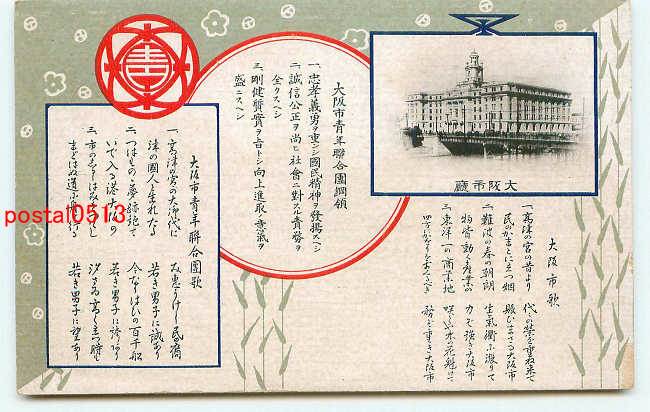 大阪市廳
大阪市歌
一、高津の宮の昔より
代々の榮を重ね來て
民のかまどに立つ烟
殷ひまさる大阪市
二、難波の春の朝朗
生氣衢に漲りて
物皆動く産業の
力ぞ強き大阪市
三、東洋一の商業地
咲くや木の花魁けて
務ぞ重き大阪市
大阪市青年聯合團綱領
一、忠孝義勇ヲ重ンシ國民精神ヲ發揚スヘシ
二、誠信公正ヲ尚ヒ社會ニ對スル責務ヲ
全クスヘシ
三、剛健質實ヲ旨トシ向上進取ノ意氣ヲ
盛ニスヘシ
大阪市青年聯合團歌
一、高津の宮の大御代に
み惠うけし民の裔
津の國人と生れたる
若き男子に誠あり
二、つはもの夢跡絶て
今なりはひの百千船
いで入る港大阪の
若き男子に誇あり
三、市の
汐さゐ高く立つ時も
若き男子に望あり
postal0513